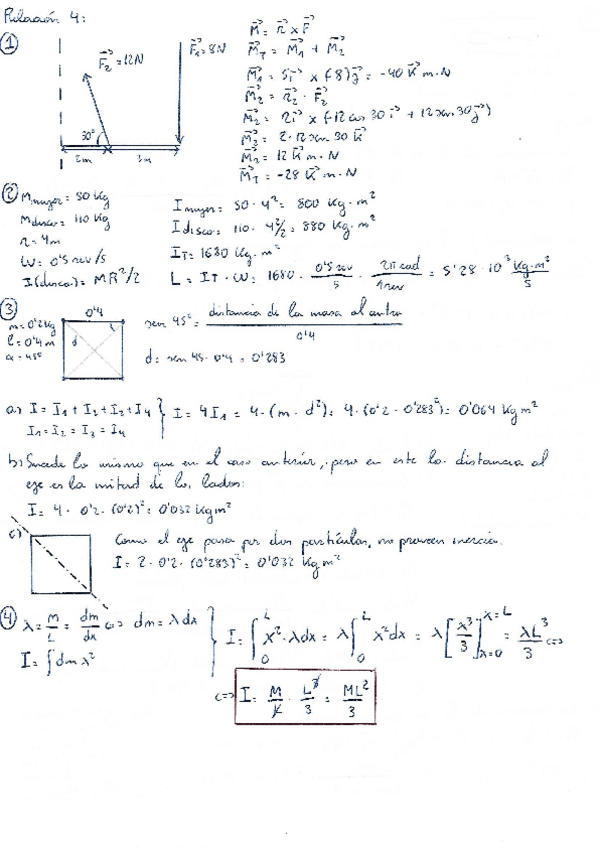 Relación 4:
①
F⃗₂ = 12N
F⃗₁ = 8N
30°
2m
3m
M⃗ = r⃗ x F⃗
M⃗_T = M⃗₁ + M⃗₂
M⃗₁ = 5i⃗ x (-8)j⃗ = -40 K⃗ m·N
M⃗₂ = r⃗₂ · F⃗₂
M⃗₂ = 2i⃗ x (-12 cos 30 i⃗ + 12 sen 30 j⃗)
M⃗₂ = 2·12 sen 30 K⃗
M⃗₂ = 12 K⃗ m·N
M⃗_T = -28 K⃗ m·N
②
M mujer = 50 Kg
M disco = 110 Kg
r = 4m
ω = 0'5 rev/s
I(disco) = MR²/2
I mujer = 50 · 4² = 800 Kg · m²
I disco = 110 · 4²/2 = 880 Kg · m²
I_T = 1680 Kg · m²
L = I_T · ω = 1680 · 0'5 rev/s · 2π rad/1 rev = 5'28 · 10³ Kg·m²/s
③
m = 0'2 Kg
l = 0'4 m
α = 45º
0'4
d
sen 45º = distancia de la masa al centro / 0'4
d = sen 45 · 0'4 = 0'283
a) I = I₁ + I₂ + I₃ + I₄
I₁ = I₂ = I₃ = I₄
} I = 4I₁ = 4 · (m · d²) = 4 · (0'2 · 0'283²) = 0'064 Kg m²
b) Sucede lo mismo que en el caso anterior, pero en este la distancia al
eje es la mitad de los lados:
I = 4 · 0'2 · (0'2)² = 0'032 Kg m²
c)
Como el eje pasa por dos partículas, no proveen inercia.
I = 2 · 0'2 · (0'283)² = 0'032 Kg m²
④
λ = m/L = dm/dx <=> dm = λdx
I = ∫dm x²
} I = ∫₀ᴸ x² · λdx = λ ∫₀ᴸ x²dx = λ [x³/3]ₓ₌₀ˣ⁼ᴸ = λL³/3 <=>
<=> I = M/L · L³/3 = ML²/3